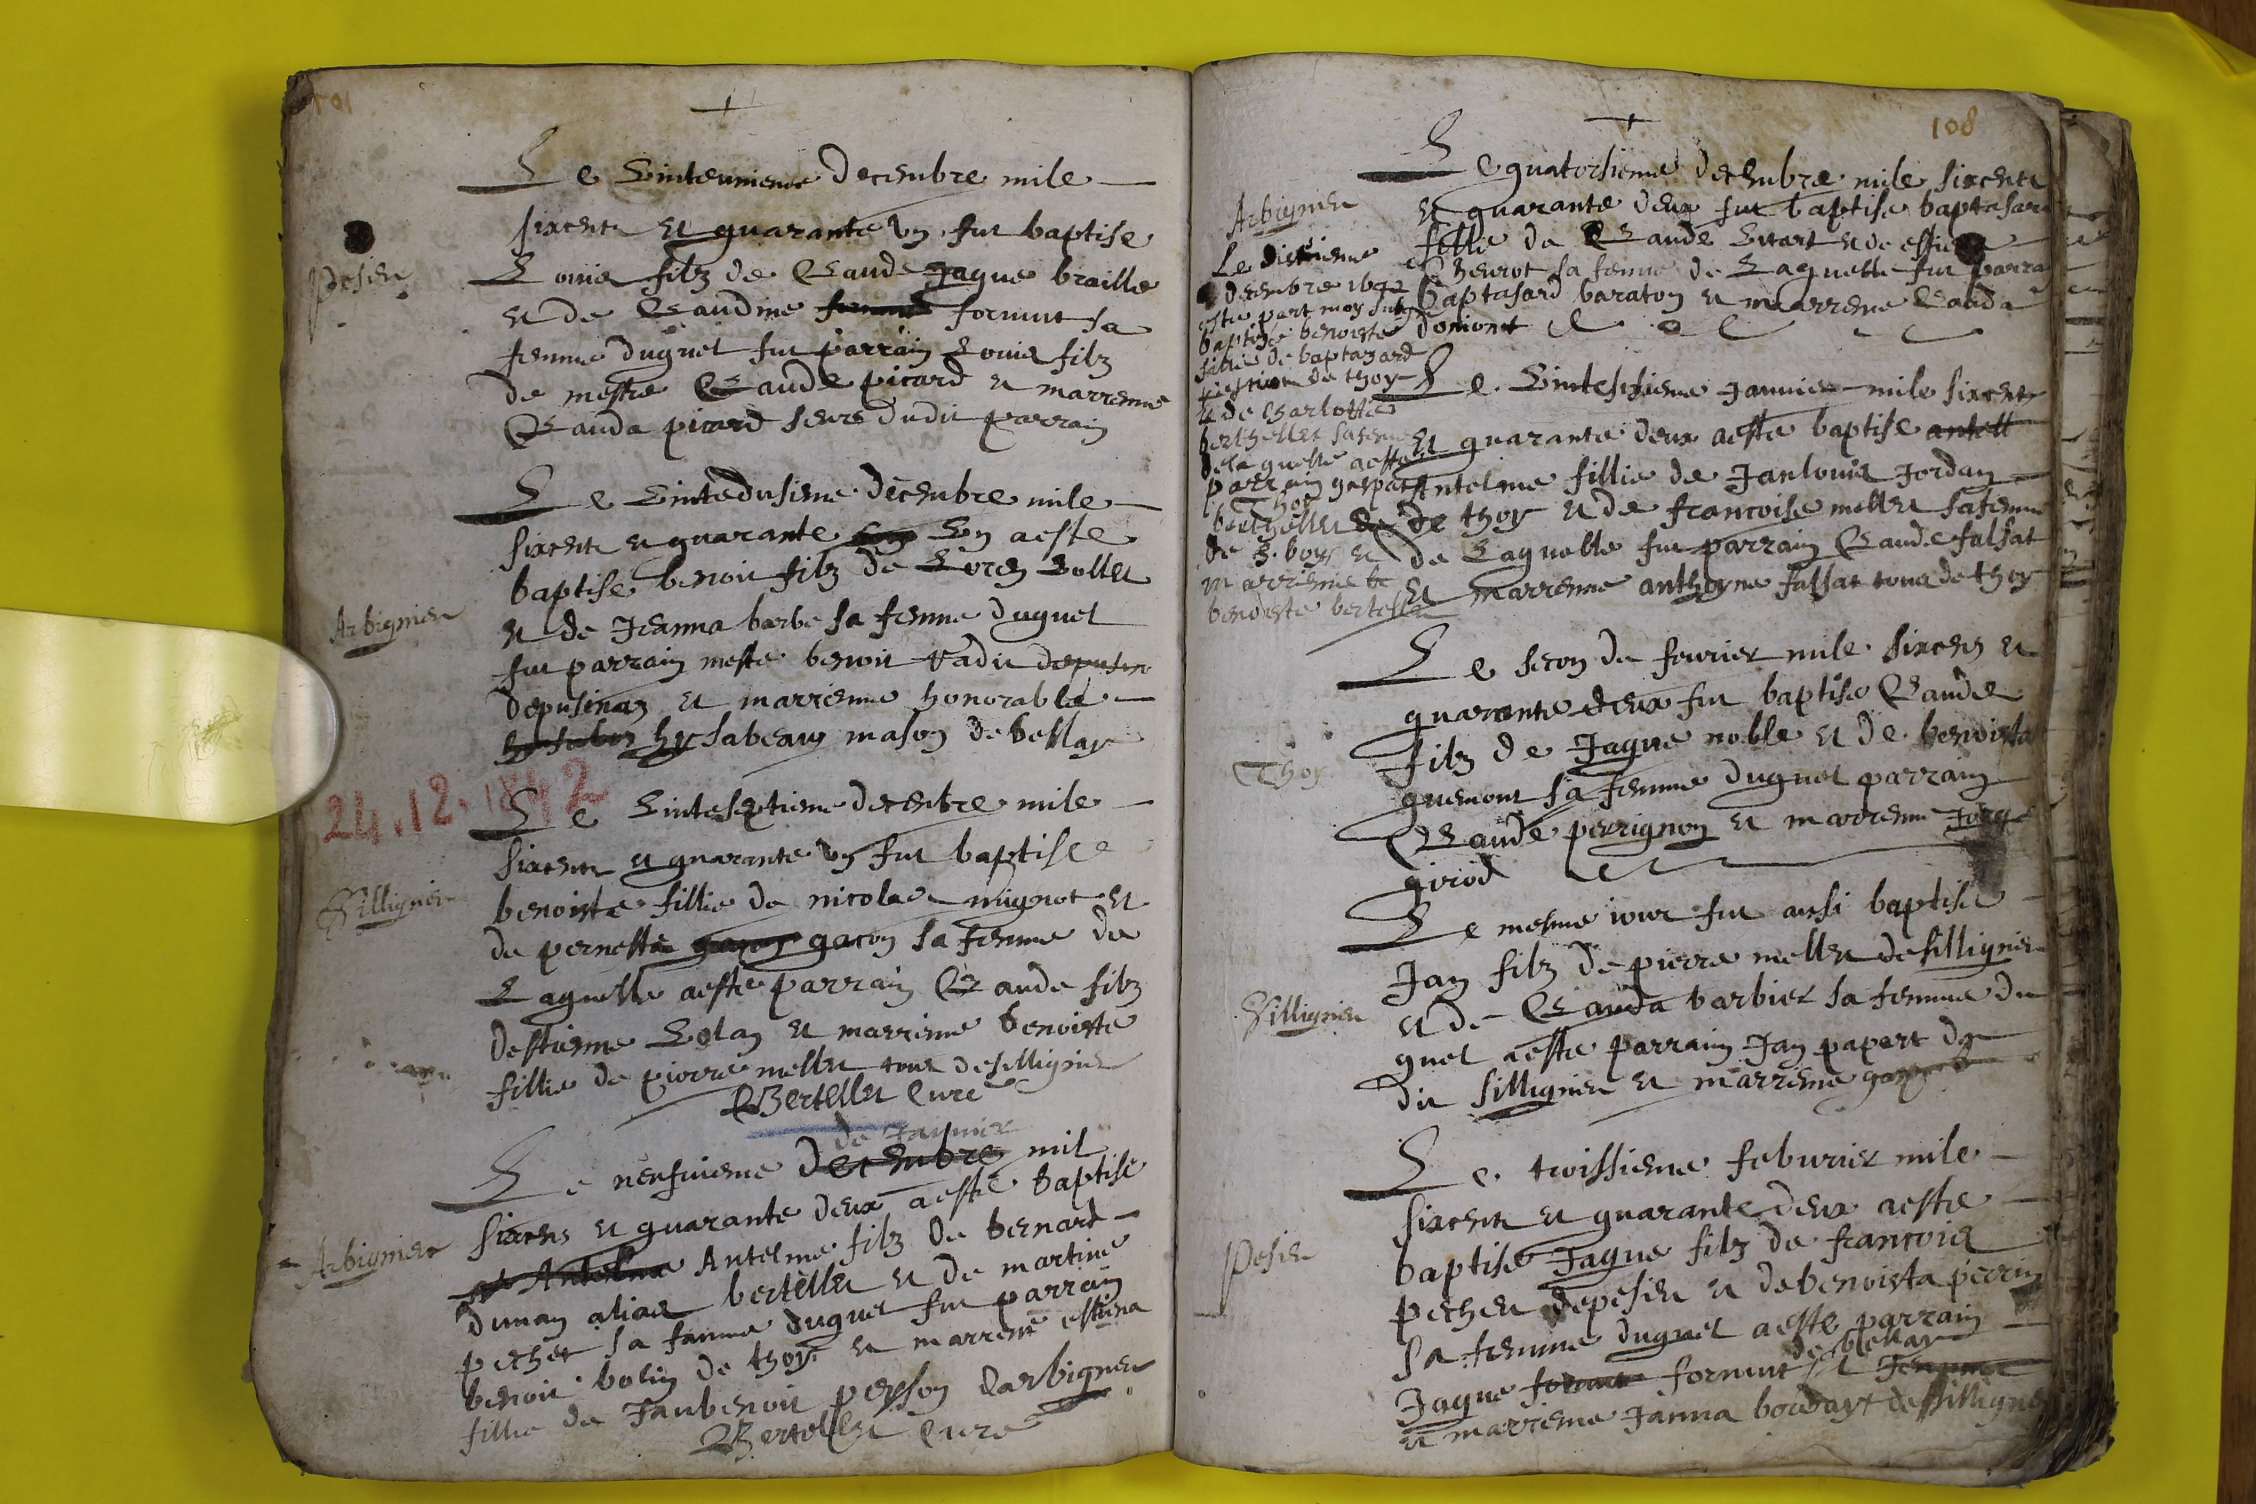 107
Le Vinteunieme Decembre mile
sixcent et quarante un fut baptise
Pesieu
Louis filz de Claude Jaque braille
et de Claudine fornunt sa
femme duquel fut parrain Louis filz
de mestre Claude picard et marrenne
Clauda picard seure dudit parrain
Le Vintedusieme decembre mile
sixcent et quarante Un aeste
baptise benoit filz de Loren Vollet
Arbignieu
et de Jeanna barbe sa femme duquel
fut parrain meste benoit Radit
depusinaz et marrienne honorable
hysabeau mason de bellay
24.12.1842
Le Vinteseptieme decenbre mile
sixcent et quarante un fut baptise
Sillignieu
benoiste fillie de nicolas mignot et
de pernette gacon sa femme de
Laquelle aeste parrain Claude filz
destienne Volan et marrienne benoiste
fillie de pierre mellet tous desillignieu
Bertellet Cure
de Janvier
Le neufvieme decenbre mil
sixcens et quarante deux aeste baptise
Arbignieu
Antelme filz de bernart
dunan alias bertellet et de martine
pechet sa famme duquel fut parrain
benoit bolin de thoy et marrene estiena
fillie de Janbenoit person Darbignieu
Bertellet Cure
108
Le quatorsieme decenbre mile sixcent
Arbignieu
et quarante deux fut baptise baptasard
fillie de Claude
sa femme de Laquelle fut parra
baptasard baraton et marrenne Clauda
domont
Le disieme
decenbre 1642
aste part moy
baptise benoiste
fillie de baptazard
de thoy
et de Charlotte
berthellet sa feme
de la quelle aeste
parrain gaspar
Thoy
berthellet
de S. boys et
marrienne
benoiste bertellet
Le Vintesixieme Janvier mile sixcent
et quarante deux aeste baptise antell
Antelme fillie de Janlouis Jordan
de thoy et de francoise mellet sa femme
de Laquelle fut parrain Claude falsat
et marrenne anthoyne falsat tous de thoy
Le secon de fevrier mile sixcens et
quarante deux fut baptise Claude
Thoy
filz de Jaque noble et de benoista
quemont sa femme duquel parrain
Claude perrignon et marrenne Jorge
girod
Le mesme iour fut ausi baptise
Jan filz de pierre mellet desillignieu
Sillignieu
et de Clauda barbier sa femme du
quel aeste parrain Jan papert du
dit sillignieu et marrenne
Le troissieme feburier mile
sixcent et quarante deux aeste
Pesieu
baptise Jaque filz de francois
pechet depesieu et debenoista perrin
sa femme duquel aeste parrain
de bellay
Jaque fornunt
et marrienne Janna bordayt desillignieu